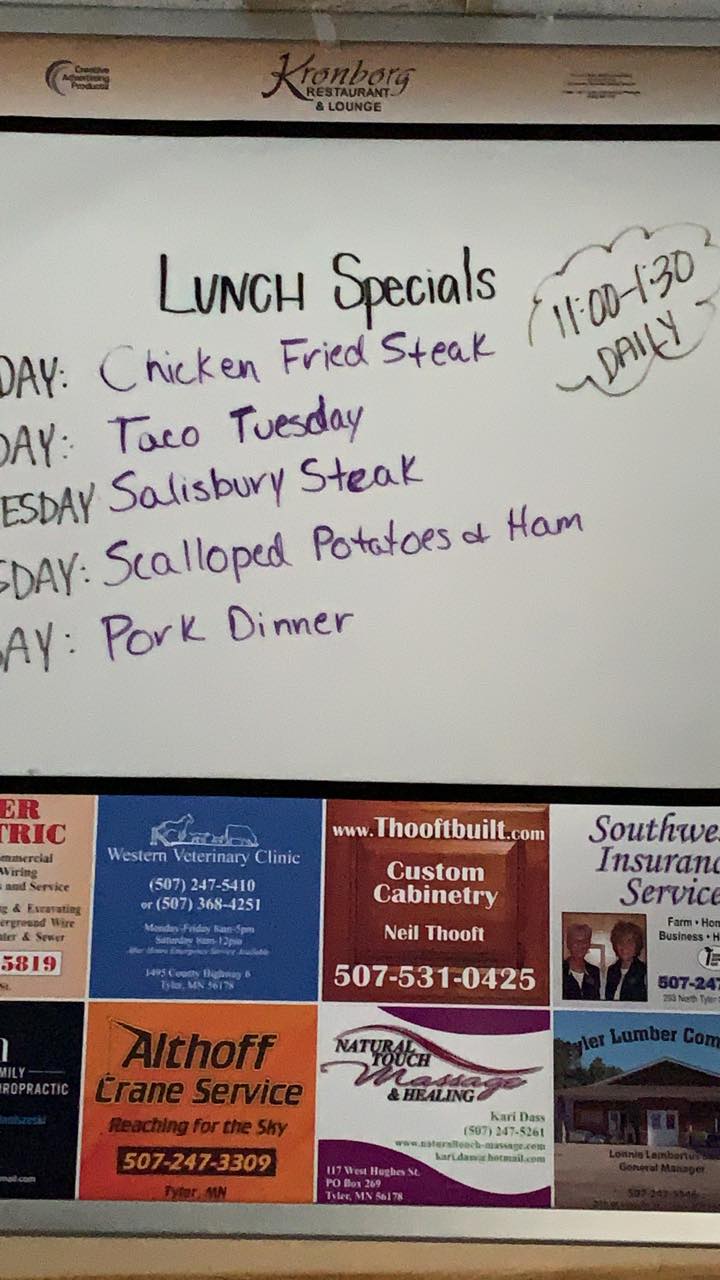 Creative
Advertising
Products
Kronborg
RESTAURANT
& LOUNGE
LUNCH Specials
11:00-1:30
DAILY
DAY: Chicken Fried Steak
DAY: Taco Tuesday
ESDAY Salisbury Steak
SDAY: Scalloped Potatoes & Ham
AY: Pork Dinner
ER
TRIC
mmercial
Wiring
s and Service
g & Excavating
erground Wire
ater & Sewer
5819
St.
Western Veterinary Clinic
(507) 247-5410
or (507) 368-4251
Monday-Friday 8am-5pm
Saturday 8am-12pm
After Hours Emergency Service Available
1495 County Highway 6
Tyler, MN 56178
www.Thooftbuilt.com
Custom
Cabinetry
Neil Thooft
507-531-0425
Southwes
Insuranc
Service
Farm • Hom
Business • H
507-247
203 North Tyler
MILY
IROPRACTIC
mail.com
Althoff
Crane Service
Reaching for the Sky
507-247-3309
Tyler, MN
NATURAL
TOUCH
Massage
& HEALING
Kari Dass
(507) 247-5261
www.naturaltouch-massage.com
kari.dass@hotmail.com
117 West Hughes St.
PO Box 269
Tyler, MN 56178
yler Lumber Com
Lonnie Lambertus
General Manager